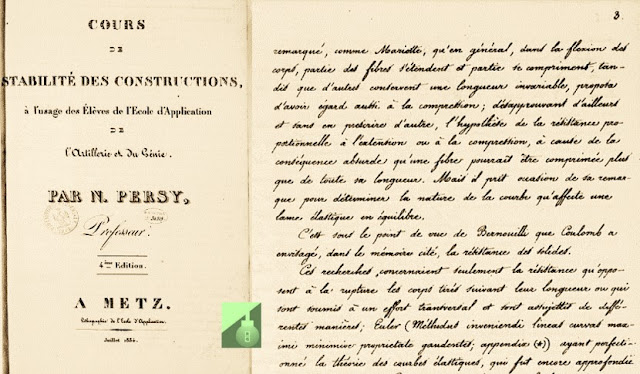 COURS
DE
STABILITÉ DES CONSTRUCTIONS,
à l'usage des Élèves de l'Ecole d'Application
DE
l'Artillerie et du Génie.
PAR N. PERSY,
Professeur.
4ème Edition.
A METZ.
Lithographie de l'Ecole d'Application.
Juillet 1834.
3.
remarqué, comme Mariotte, qu'en général, dans la flexion des
corps, partie des fibres s'étendent et partie se compriment, tan-
dis que d'autres conservent une longueur invariable, proposa
d'avoir égard aussi à la compression; désapprouvant d'ailleurs
et sans en prescrire d'autre, l'hypothèse de la résistance pro-
portionnelle à l'extension ou à la compression, à cause de la
conséquence absurde qu'une fibre pourrait être comprimée plus
que de toute sa longueur. Mais il prit occasion de sa remar-
que pour déterminer la nature de la courbe qu'affecte une
lame élastique en équilibre.
C'est sous le point de vue de Bernouilli que Coulomb a
envisagé, dans le mémoire cité, la résistance des solides.
Ces recherches, concernaient seulement la résistance qu'oppo-
sent à la rupture les corps tirés suivant leur longueur ou qui
sont soumis à un effort transversal et sont assujettis de diffé-
rentes manières; Euler (Méthodus inveniendi lineas curvas maxi-
mi minimive proprietate gaudentes; appendix (*)) ayant perfecti-
onné la théorie des courbes élastiques, qui fut encore approfondie